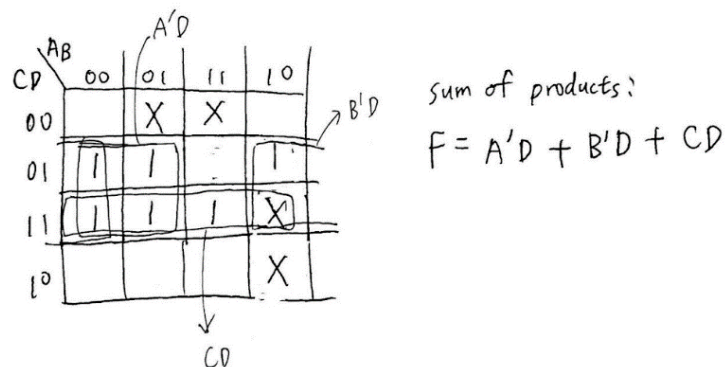 A'D
AB
CD 00 01 11 10
00 X X
B'D
01 1 1 1
11 1 1 1 X
10 X
CD
sum of products:
F = A'D + B'D + CD